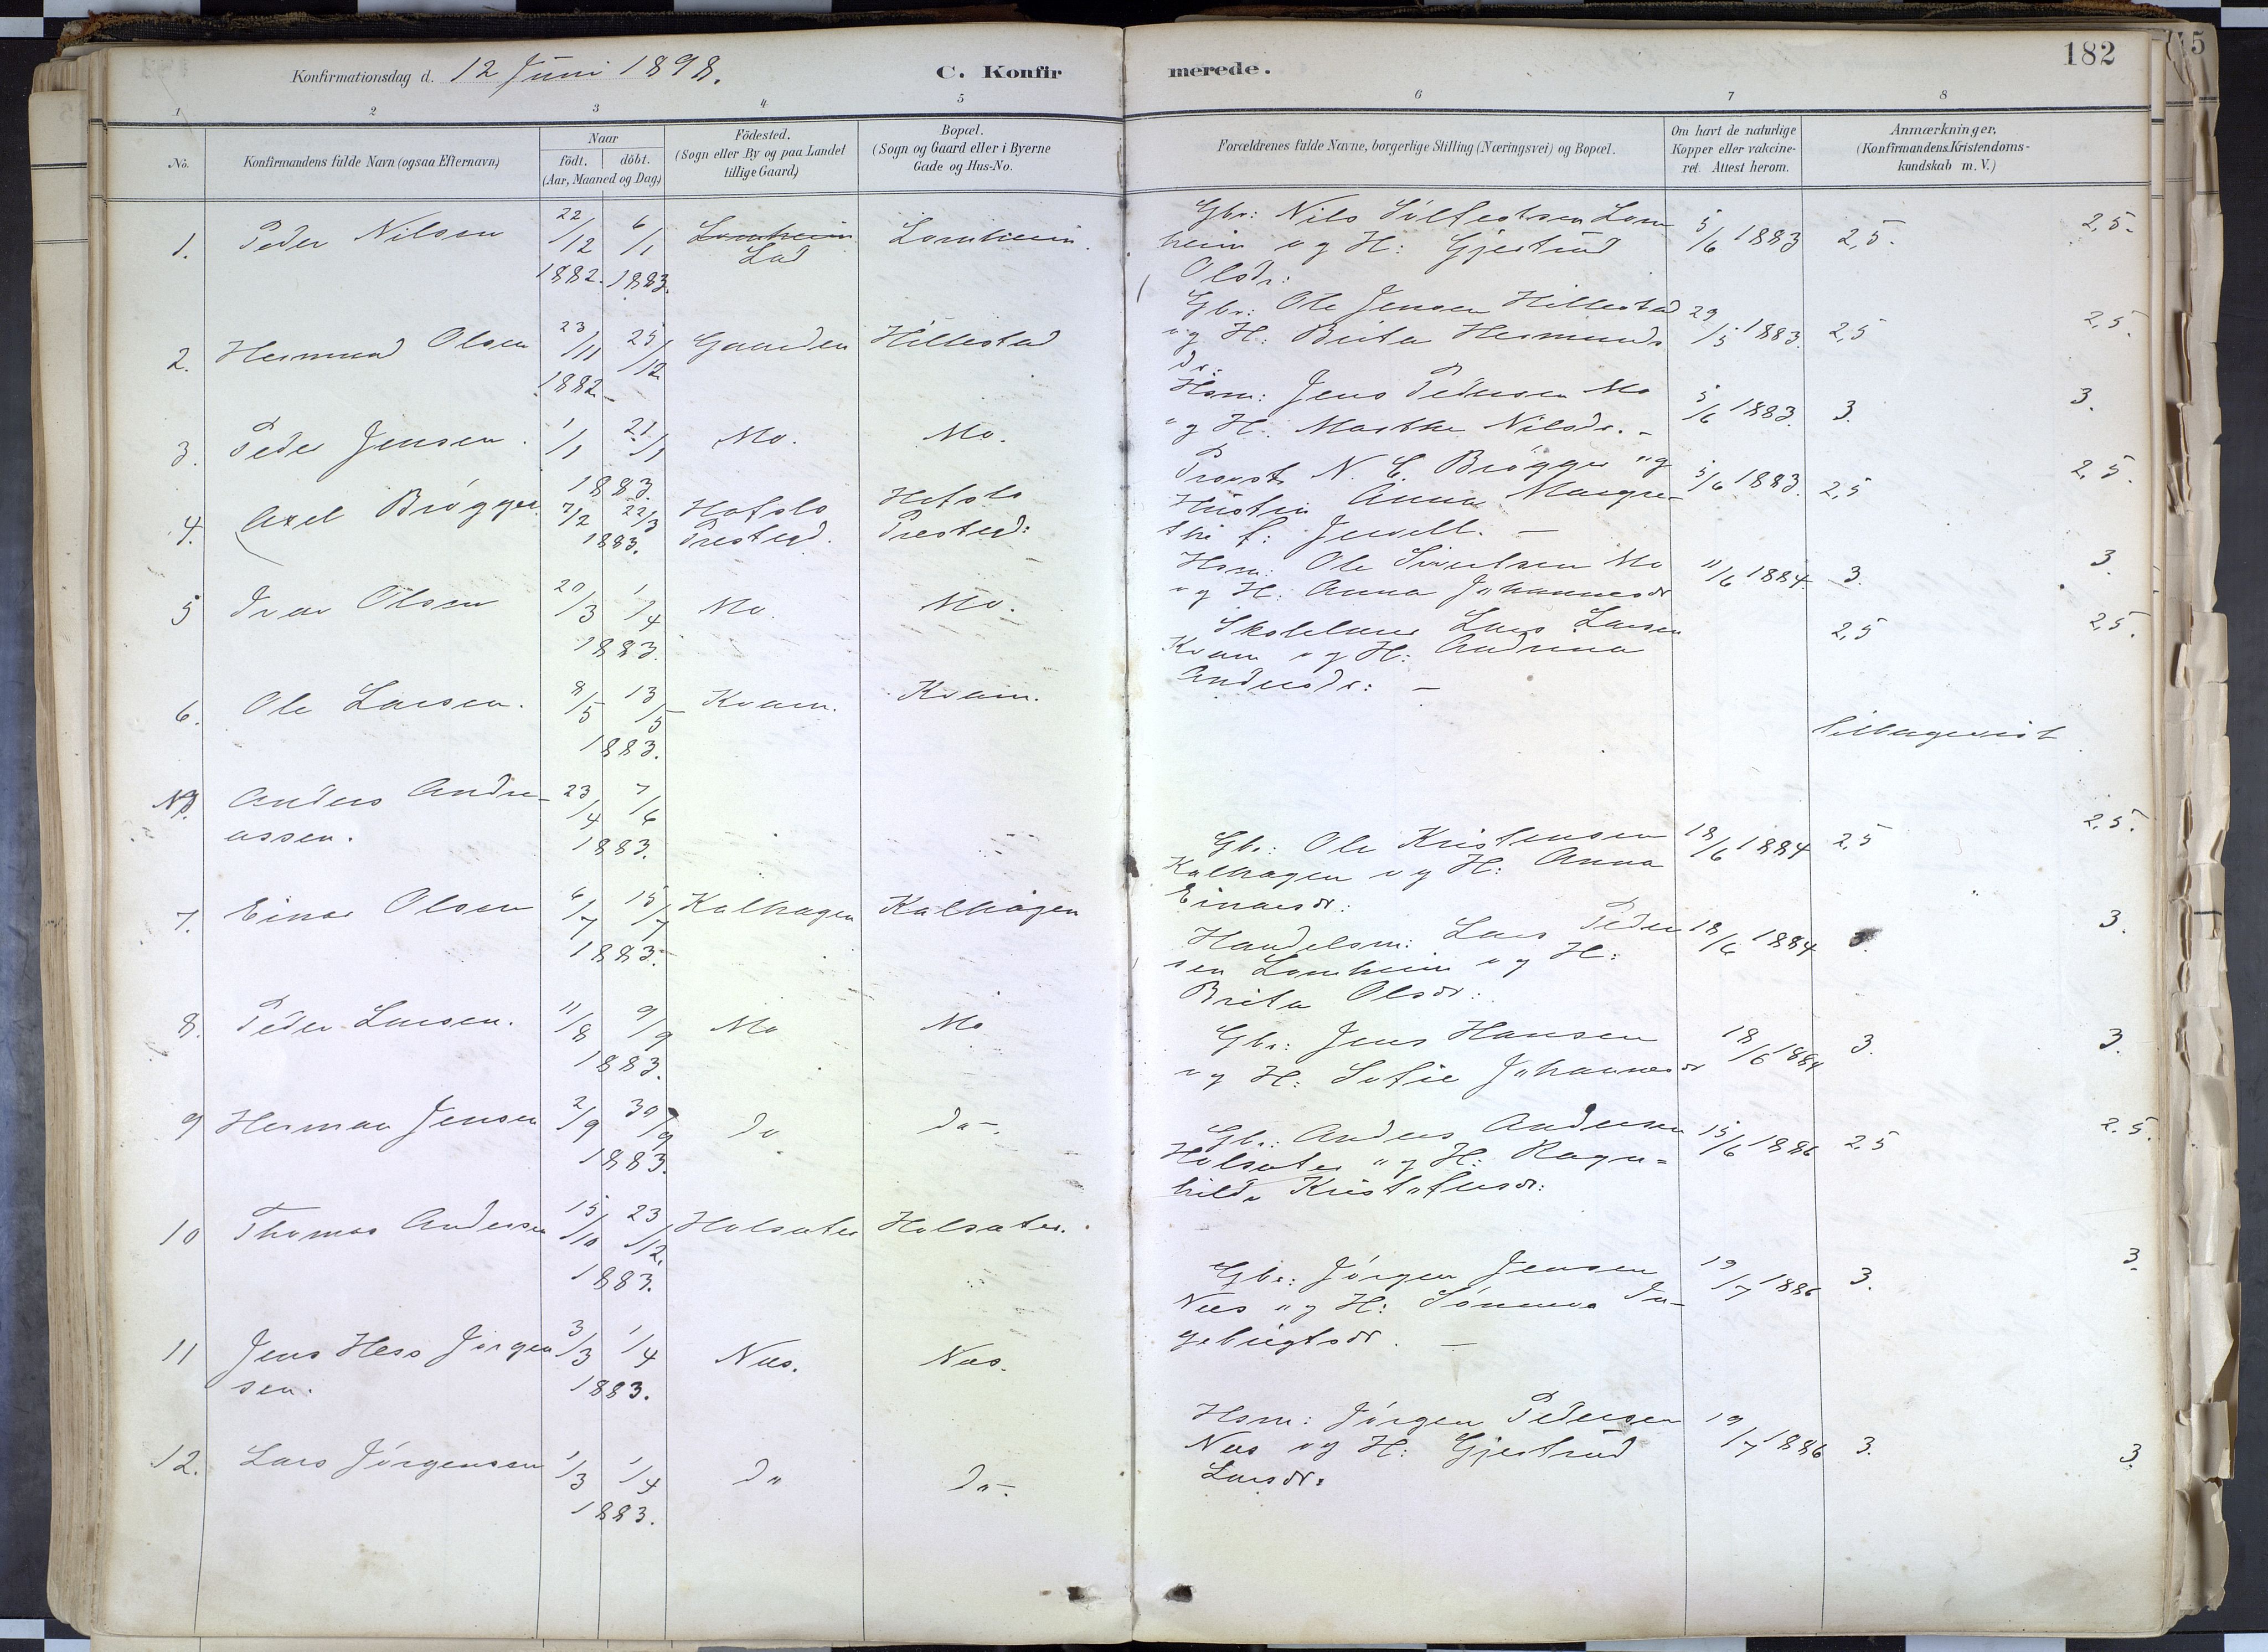 182
Konfirmationsdag d. 12 Juni 1898. C. Konfirmerede.
1 2 3 4 5 6 7 8
No.
Konfirmandens fulde Navn (ogsaa Efternavn)
Naar
födt. döbt.
(Aar, Maaned og Dag)
Födested.
(Sogn eller By og paa Landet
tillige Gaard)
Bopæl.
(Sogn og Gaard eller i Byerne
Gade og Hus-No.
Forældrenes fulde Navne, borgerlige Stilling (Næringsvei) og Bopæl.
Om havt de naturlige
Kopper eller vakcine-
ret. Attest herom.
Anmærkninger,
(Konfirmandens Kristendoms-
kundskab m. V.)
1. Peder Nilsen 22/12 1882. 6/1 1883. Lomheim Lad Lomheim.
Gbr: Nils Sölfestsen Lom
heim og H: Gjertrud
Olsdr:
5/6 1883 2,5. 2,5.
2. Hermund Olsen 23/11 25/12 1882.- Gaarden Hillestad
Gbr: Ole Jensen Hillestad
og H: Brita Hermunds
dr:
29/5 1883. 2,5 2,5.
3. Peder Jensen. 1/1 21/1 1883. Mo. Mo.
Hsm: Jens Pedersen Mo
og H: Marthe Nilsdr. -
5/6 1883. 3. 3.
4. Axel Brøgger 7/2 22/3 1883. Hafslo Prestegd. Hafslo Presteg:
Provst N. C. Brøgger og
Hustru Anna Magre-
the f: Jersell. -
5/6 1883. 2,5 2,5.
5 Ivar Olsen 20/3 1/4 1883. Mo. Mo.
Hsm: Ole Sjurlsen Mo
og H: Anna Johannesdr
11/6 1884. 3. 3.
6. Ole Larsen. 8/5 13/5 1883. Kvam. Kvam.
Skolelærer Lars Larsen
Kvam og H: Andrina
Andersdr: -
2,5 2,5.
Anders Andre-
assen.
23/4 7/6 1883.
Tilbagevist
7. Einar Olsen 6/7 15/7 1883.- Kalhagen Kalhagen
Gbr: Ole Kristensen
Kalhagen og H: Anna
Einarsdr:
18/6 1884 2,5 2,5.
8. Peder Larsen. 11/8 9/9 1883. Mo Mo
Handelsm: Lars Peder
sen Lomheim og H:
Brita Olsdr:
18/6 1884 3. 3.
9 Herman Jensen 2/9 30/9 1883. do do-.
Gbr: Jens Hansen
og H: Sofie Johannesdr
18/6 1884 3. 3.
10 Thomas Andersen 15/10 23/12. 1883. Holsæter Holsæter.
Gbr: Anders Andersen
Holsæter og H: Ragn=
hilda Kristofersdr:
15/6 1886 2,5 2.5.
11 Jens Hess Jørgen
sen.
3/3 1/4 1883. Næs. Næs.
Gbr: Jörgen Jensen
Næs og H: Sönneva In-
gebrigtsdr. -
19/7 1886 3. 3.
12. Lars Jörgensen 1/3 1/4 1883. do do-.
Hsm: Jörgen Pedersen
Næs og H: Gjertrud
Larsdr:
19/7 1886 3. 3.